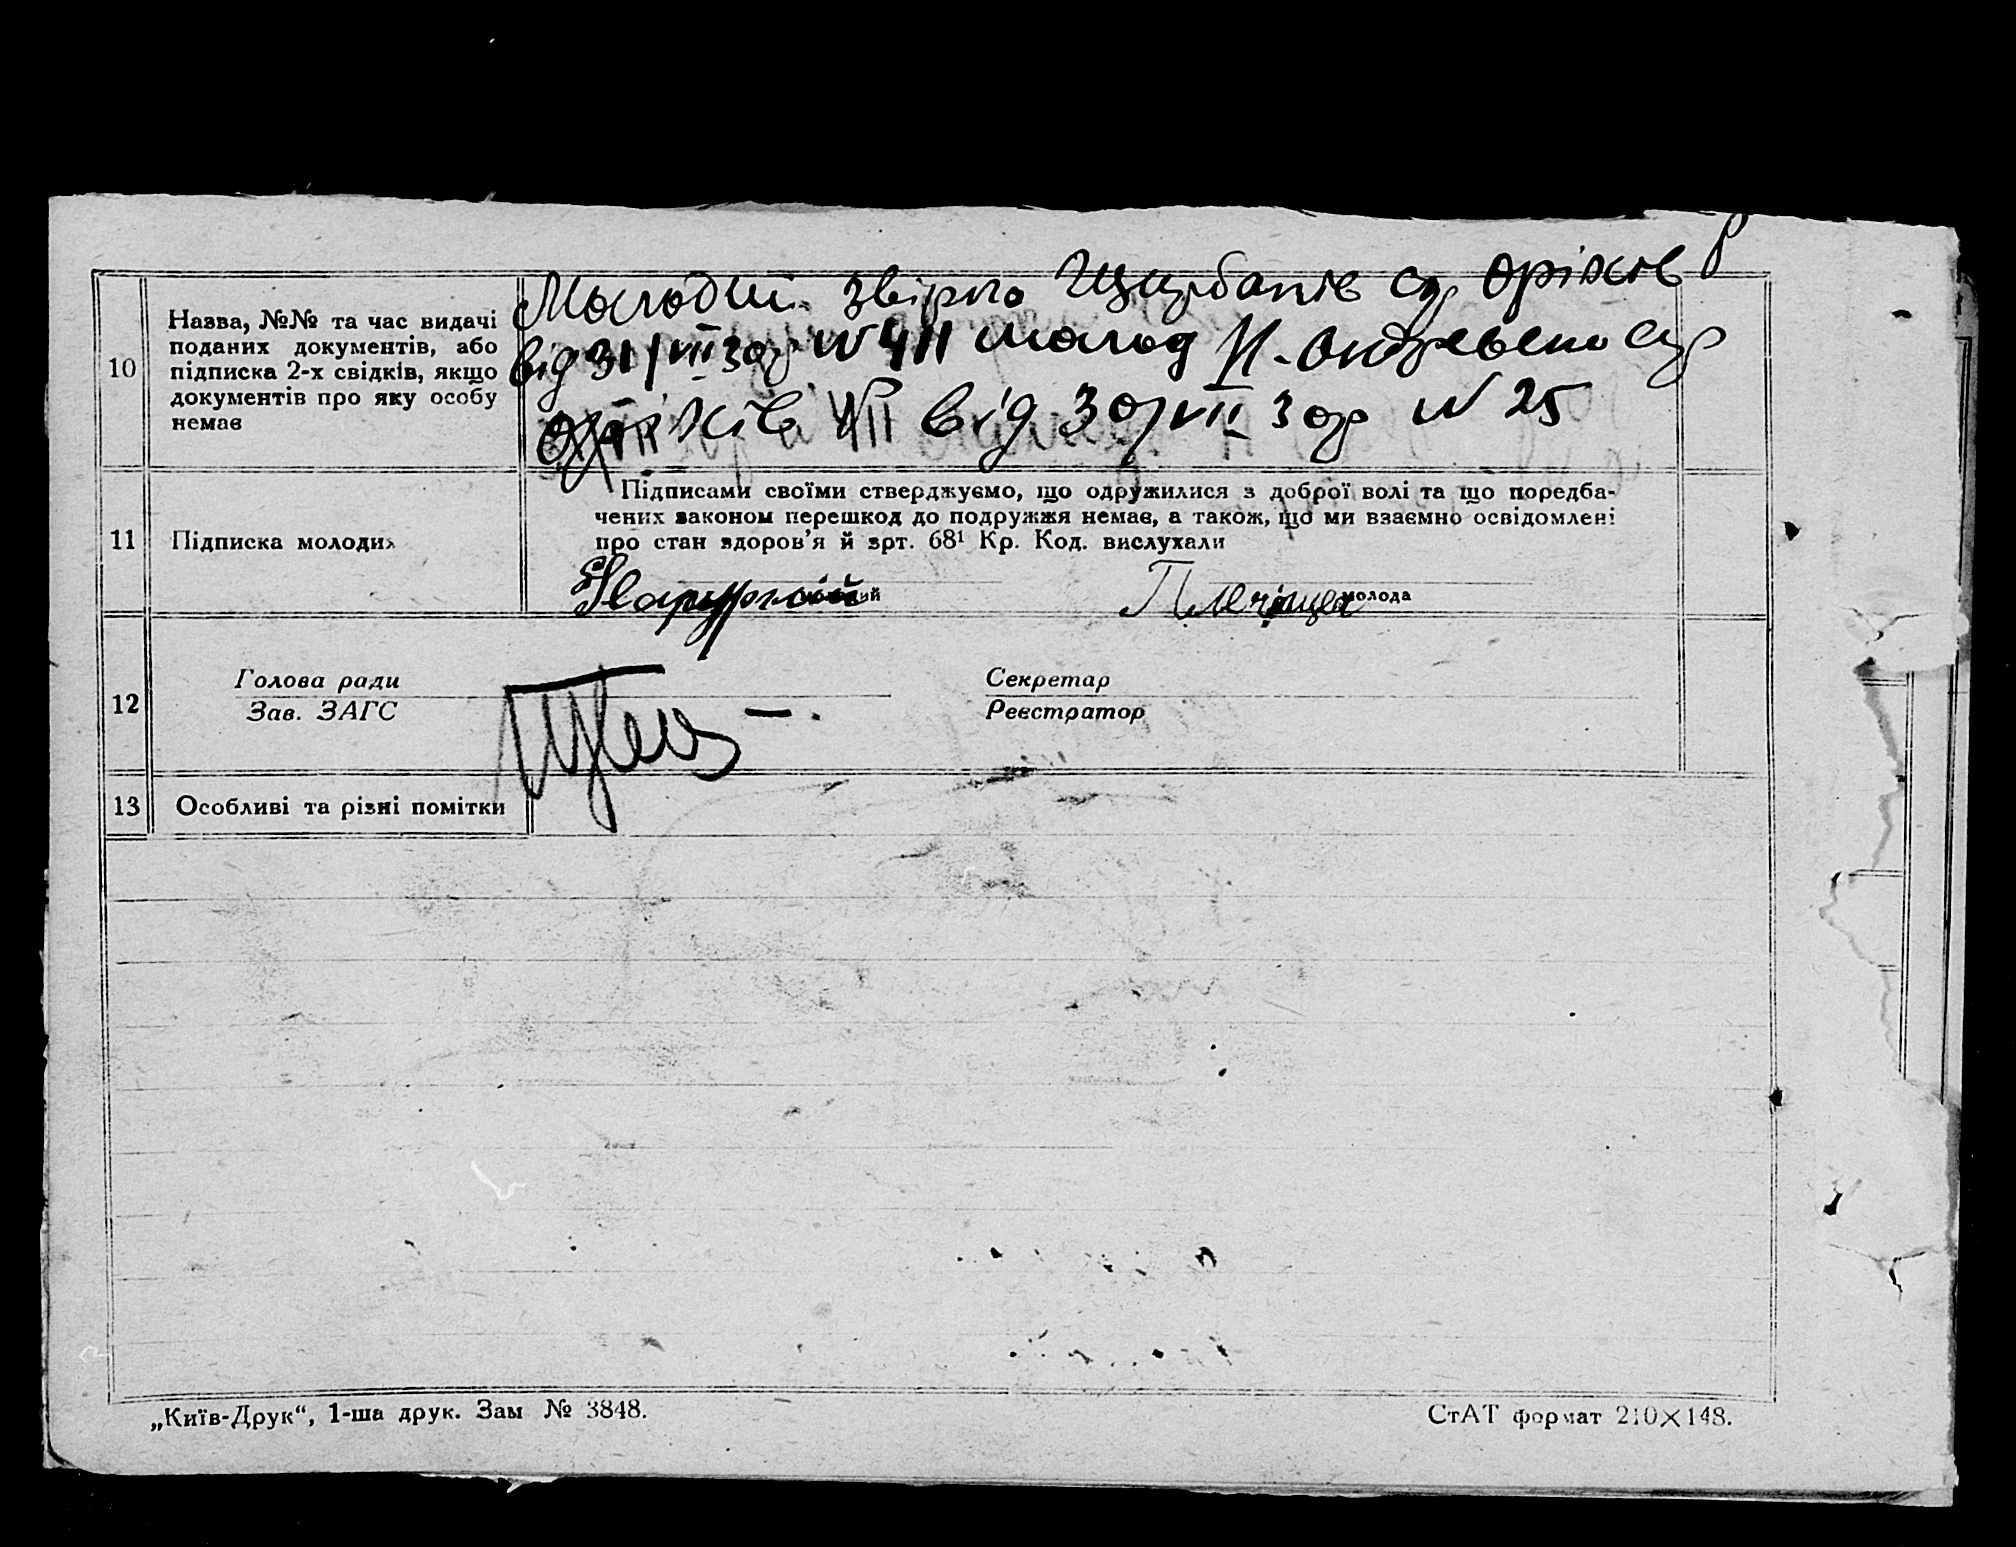 10
Назва, №№ та час видачі
поданих документів, або
підписка 2-х свідків, якщо
документів про яку особу
немає
Молодий Щурбапів с/р Оріхів Р
від 31/VII 30р N 411 молод Н-Андреевено с/р
Оріхів від 30/VII 30р N 25
11
Підписка молодих
Підписами своїми стверджуємо, що одружилися з доброї волі та що поредба-
чених законом перешкод до подружжя немає, а також, що ми взаємно освідомлені
про стан здоров'я й зрт. 68¹ Кр. Код. вислухали
молода
12
Голова ради
Зав. ЗАГС
Секретар
Реєстратор
13
Особливі та різні помітки
„Київ-Друк“, 1-ша друк. Зам № 3848.
СтАТ формат 210×148.